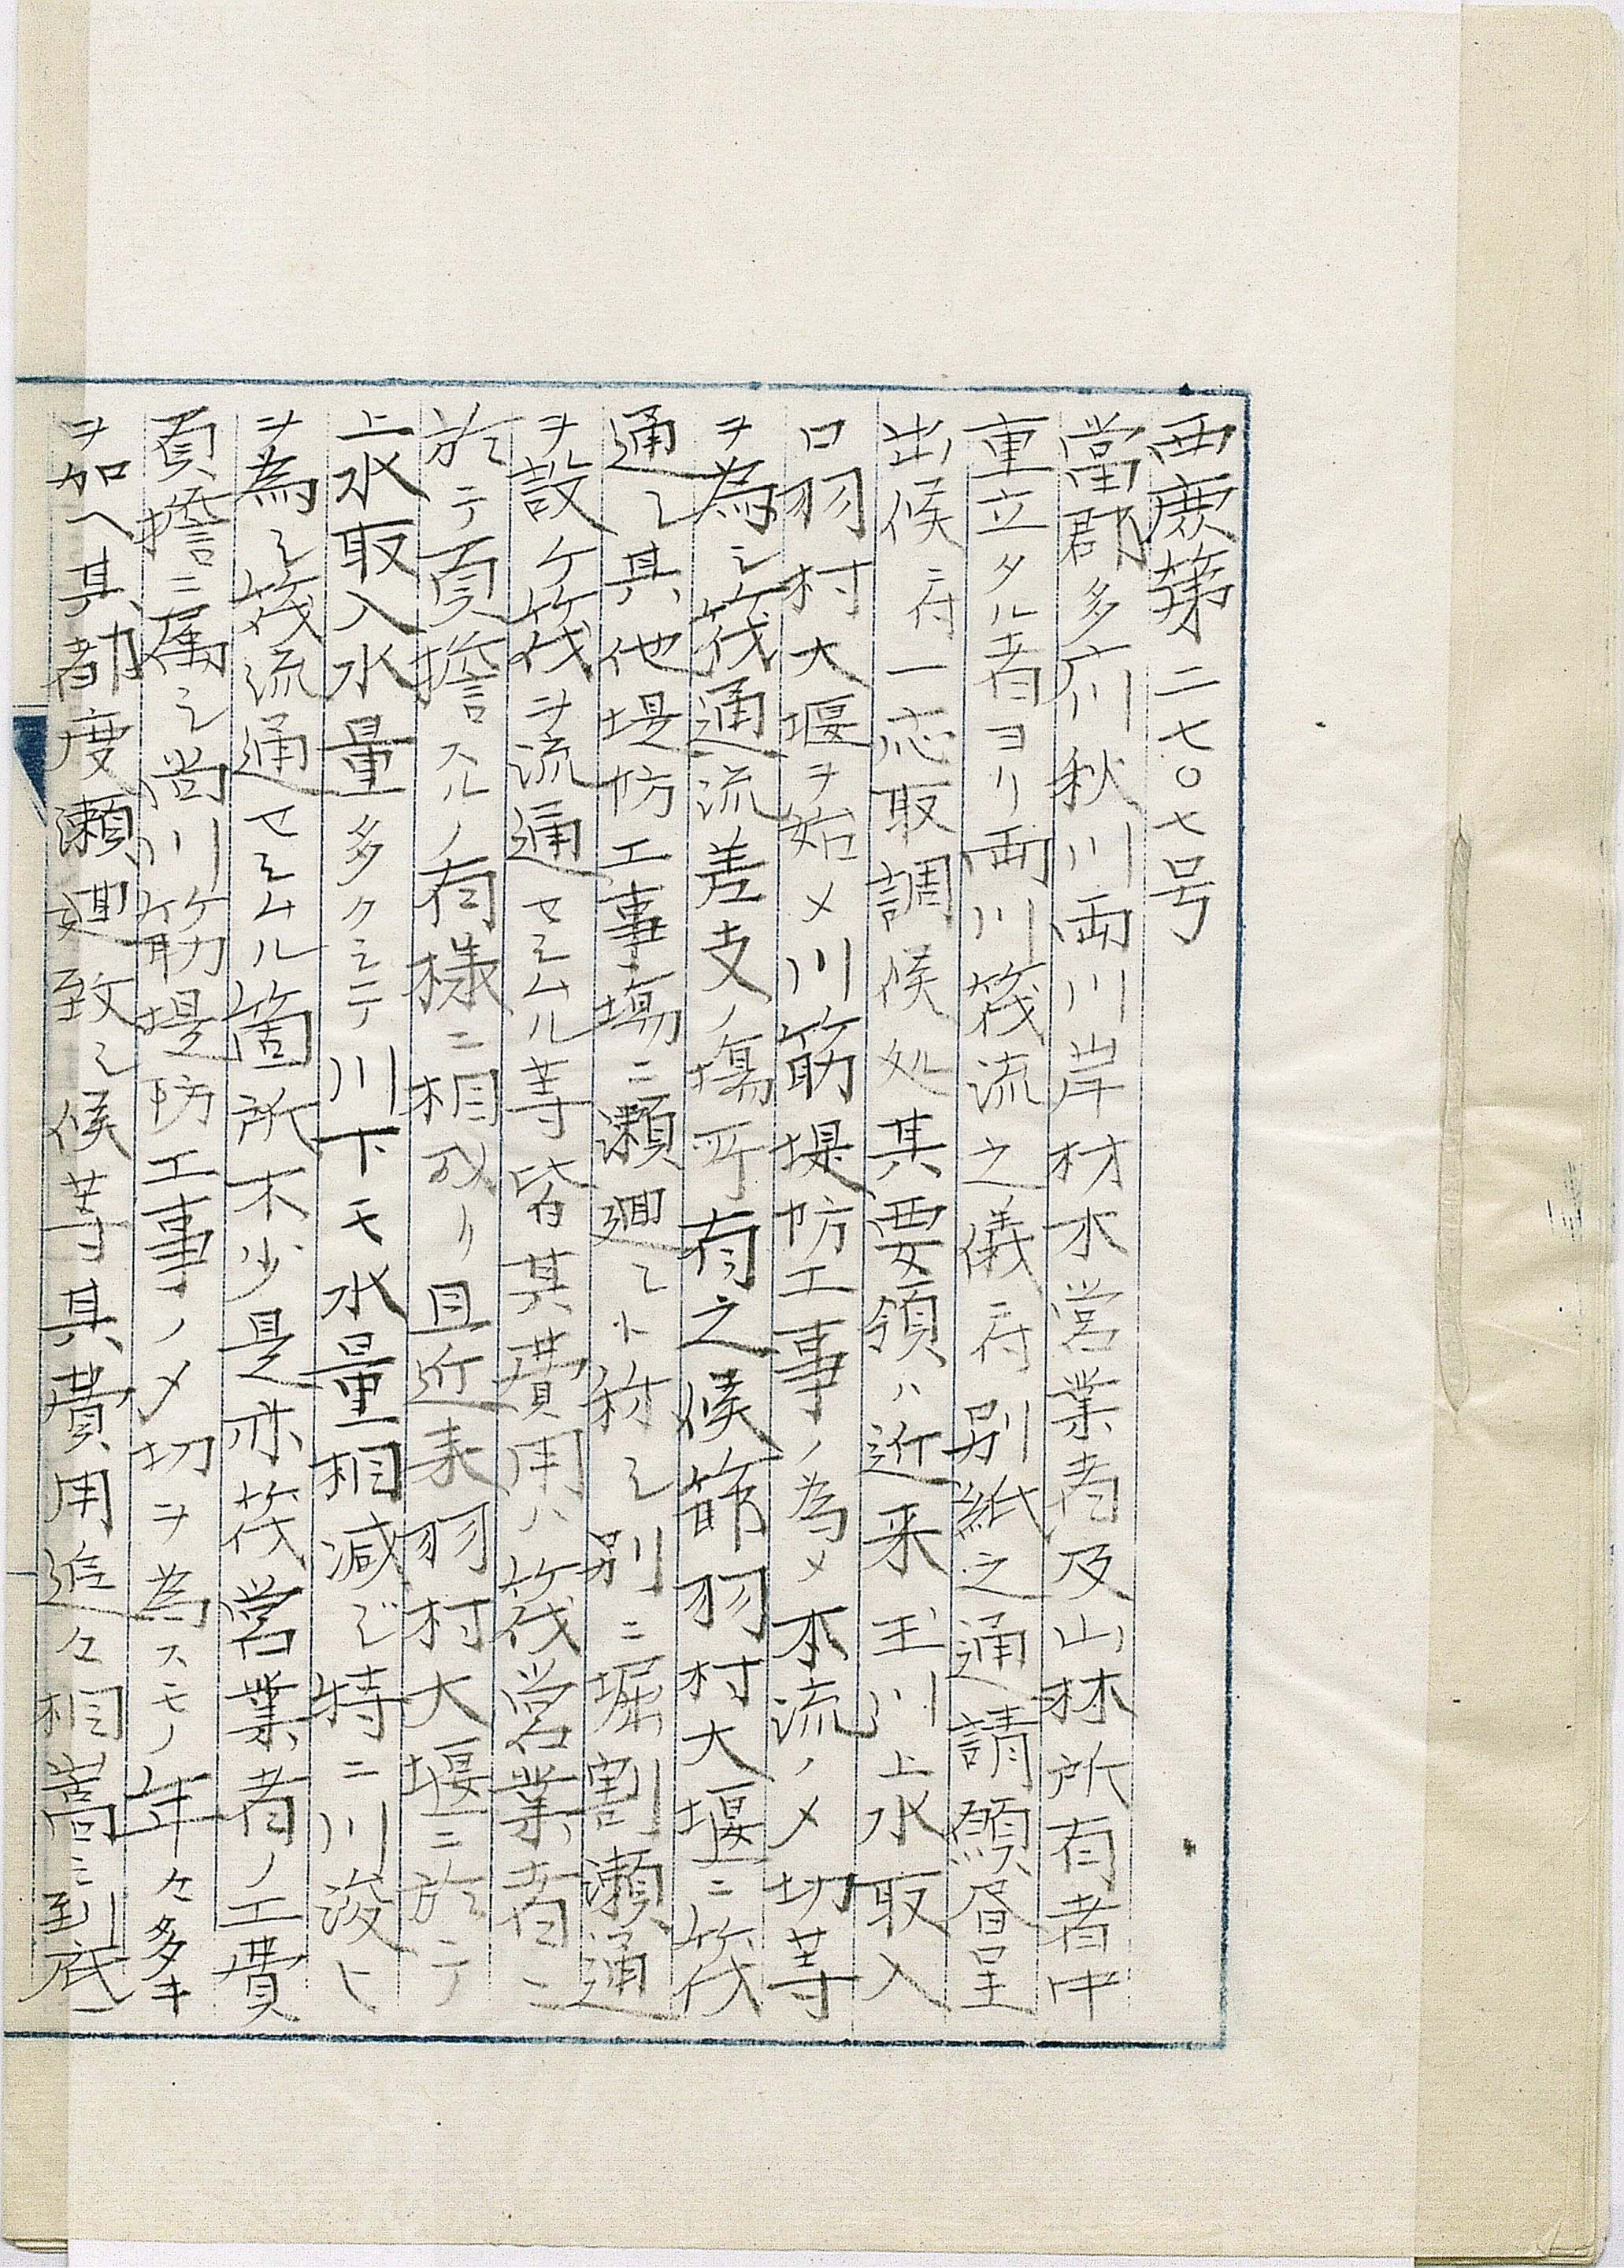 西庶第二七〇七号
當郡多广川秋川両川岸材木営業者及山林所有者中
重立タル者ヨリ両川筏流之儀ニ付別紙之通請願書呈
出候ニ付一応取調候処其要領ハ近来玉川上水取入
口羽村大堰ヲ始メ川筋堤防工事ノ為メ本流ノメ切等
ヲ為シ筏通流差支ノ塲所有之候節羽村大堰ニ筏
通シ其他堤防工事塲ニ瀬廻シト称シ別ニ堀割瀬通
ヲ設ケ筏ヲ流通セシムル等皆其費用ハ筏営業者ニ
於テ負擔スルノ有様ニ相成リ且近来羽村大堰ニ於テ
上水取入水量多クシテ川下モ水量相减ジ特ニ川浚ヒ
ヲ為シ筏流通セシムル箇所不少是亦筏営業者ノ工費
負擔ニ属シ尚川筋堤防工事ノメ切ヲ為スモノ年々多キ
ヲ加ヘ其都度瀬廻致シ候等其費用追々相嵩ミ到底